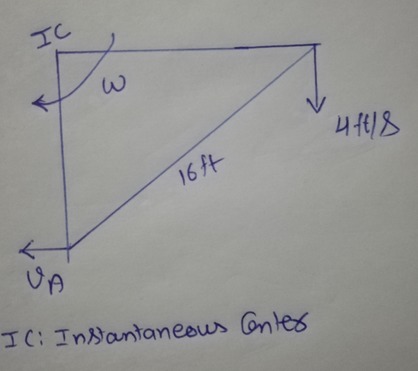 IC
ω
4ft/s
16ft
VA
IC: Instantaneous Center